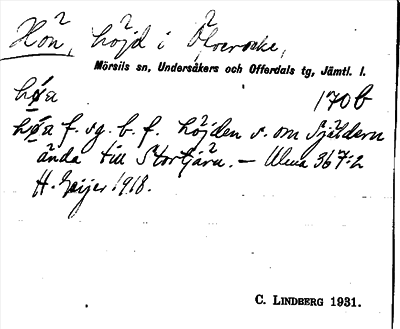 Hön, höjd i Överocke,
Mörsils sn, Undersåkers och Offerdals tg, Jämtl. l.
høa 170b
høa f. sg. b. f. höjden s. om Själdern
ända till Stortjärn. – Ulma 367:2
H. Geijer 1918.
C. LINDBERG 1931.